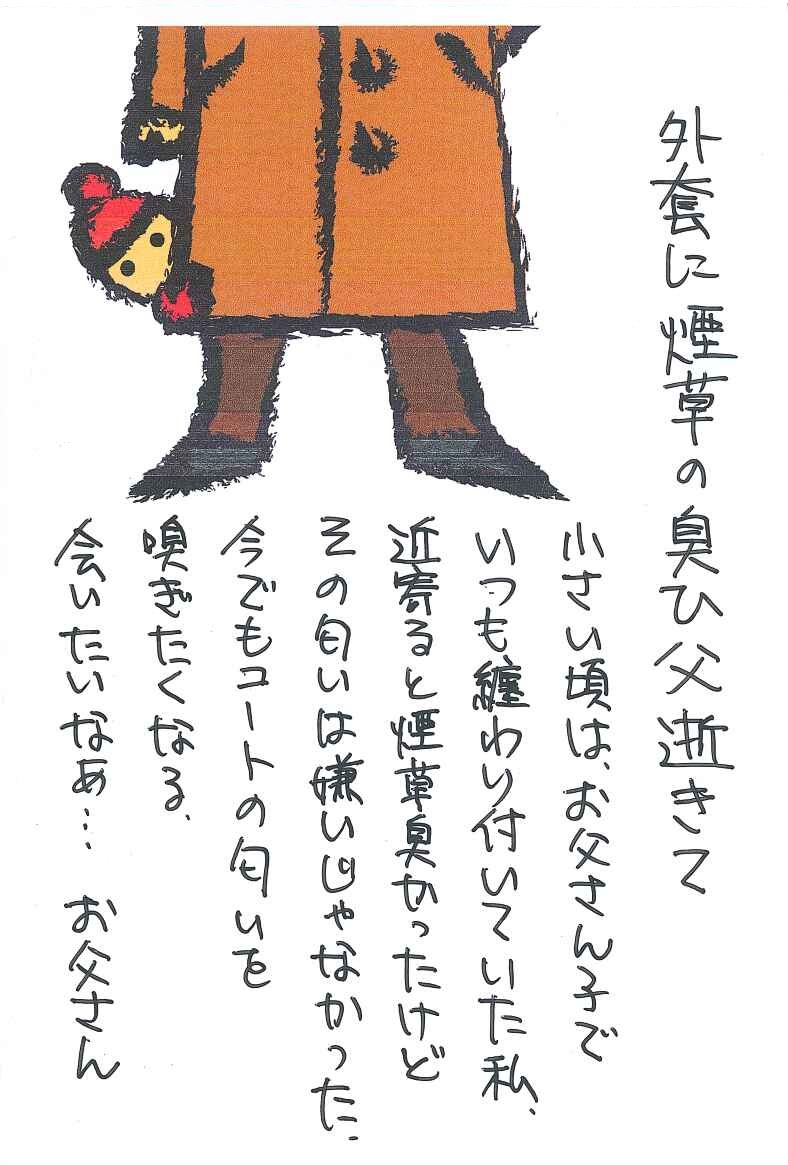 外套に煙草の臭ひ父逝きて
小さい頃は、お父さん子で
いつも纏わり付いていた私、
近寄ると煙草臭かったけど
その匂いは嫌いじゃなかった.
今でもコートの匂いを
嗅ぎたくなる、
会いたいなぁ… お父さん